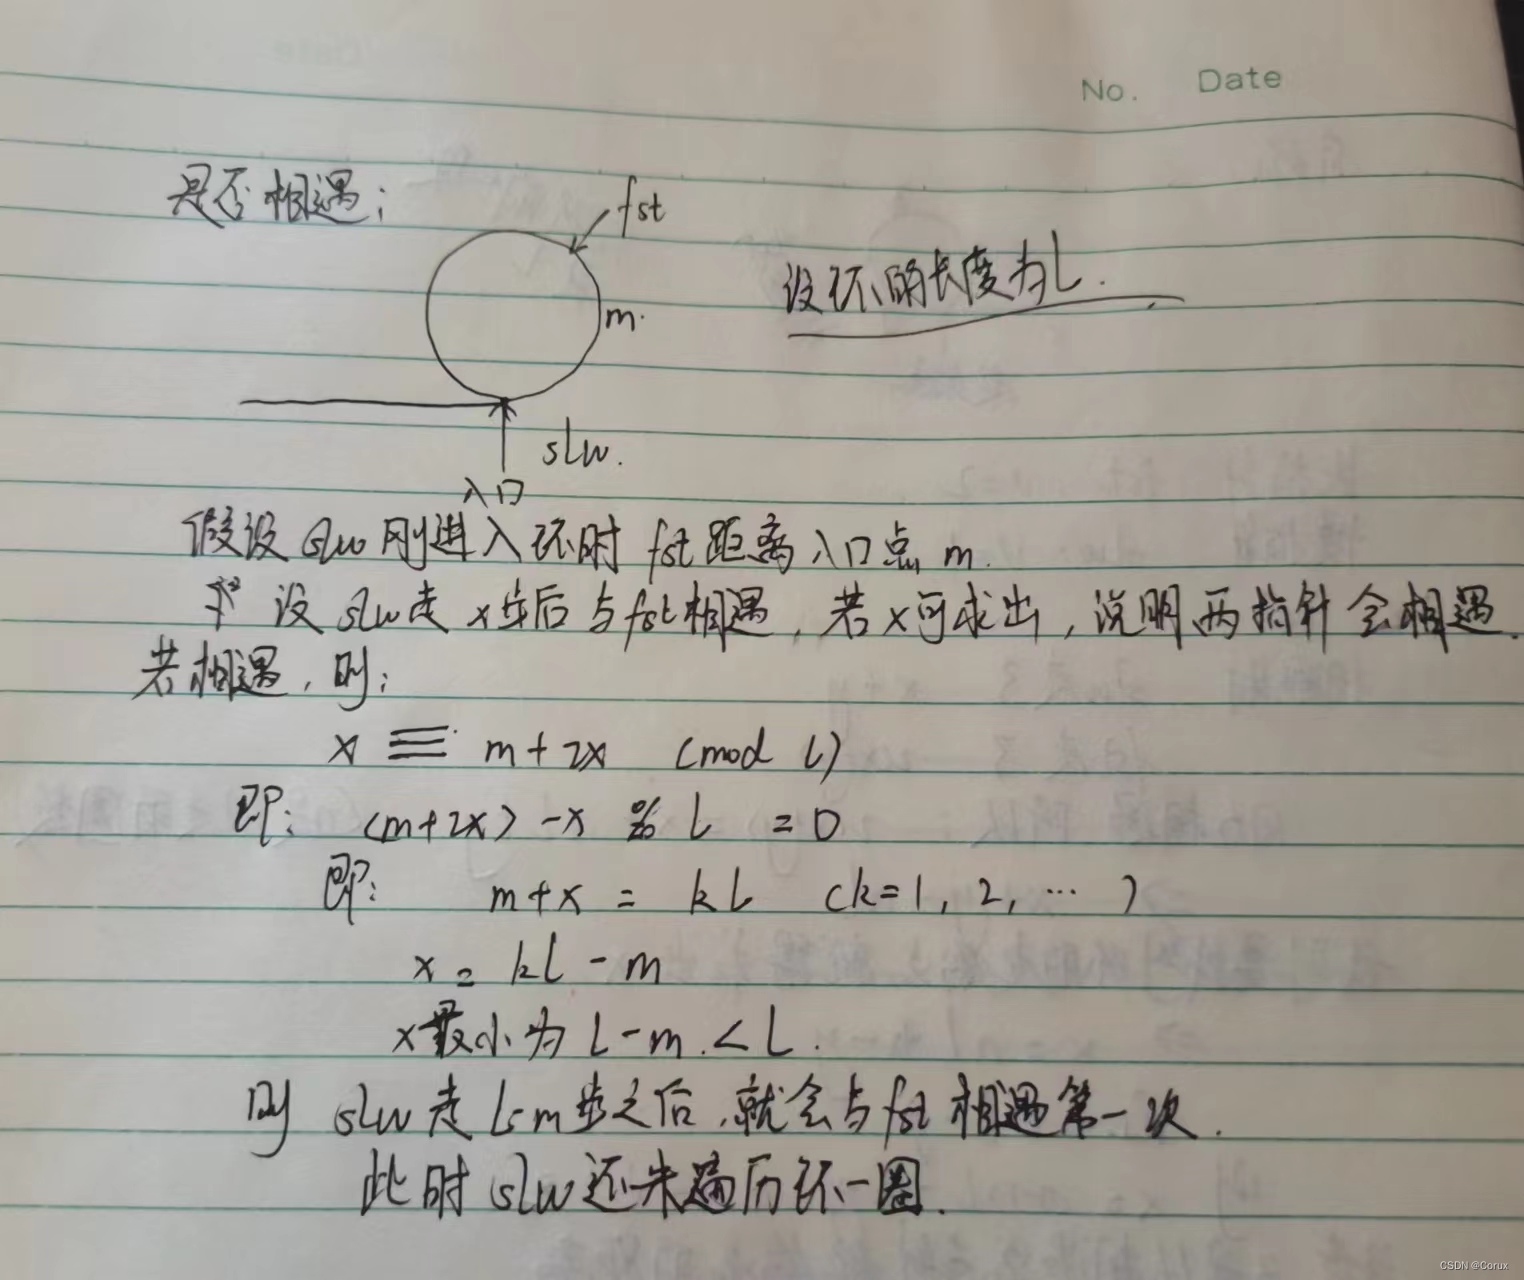 No. Date
是否相遇:
fst
设环的长度为L.
m.
slw.
入口
假设 slw 刚进入环时 fst 距离入口点 m.
设 slw 走 x步后与fst相遇, 若x可求出, 说明两指针会相遇.
若相遇, 则:
x ≡ m+2x (mod L)
即: (m+2x) -x % L = 0
即: m+x = kL (k=1, 2, ... )
x = kL - m
x最小为 L-m < L.
则 slw 走 L-m步之后, 就会与fst 相遇第一次.
此时 slw 还未遍历环一圈.
CSDN @Corux